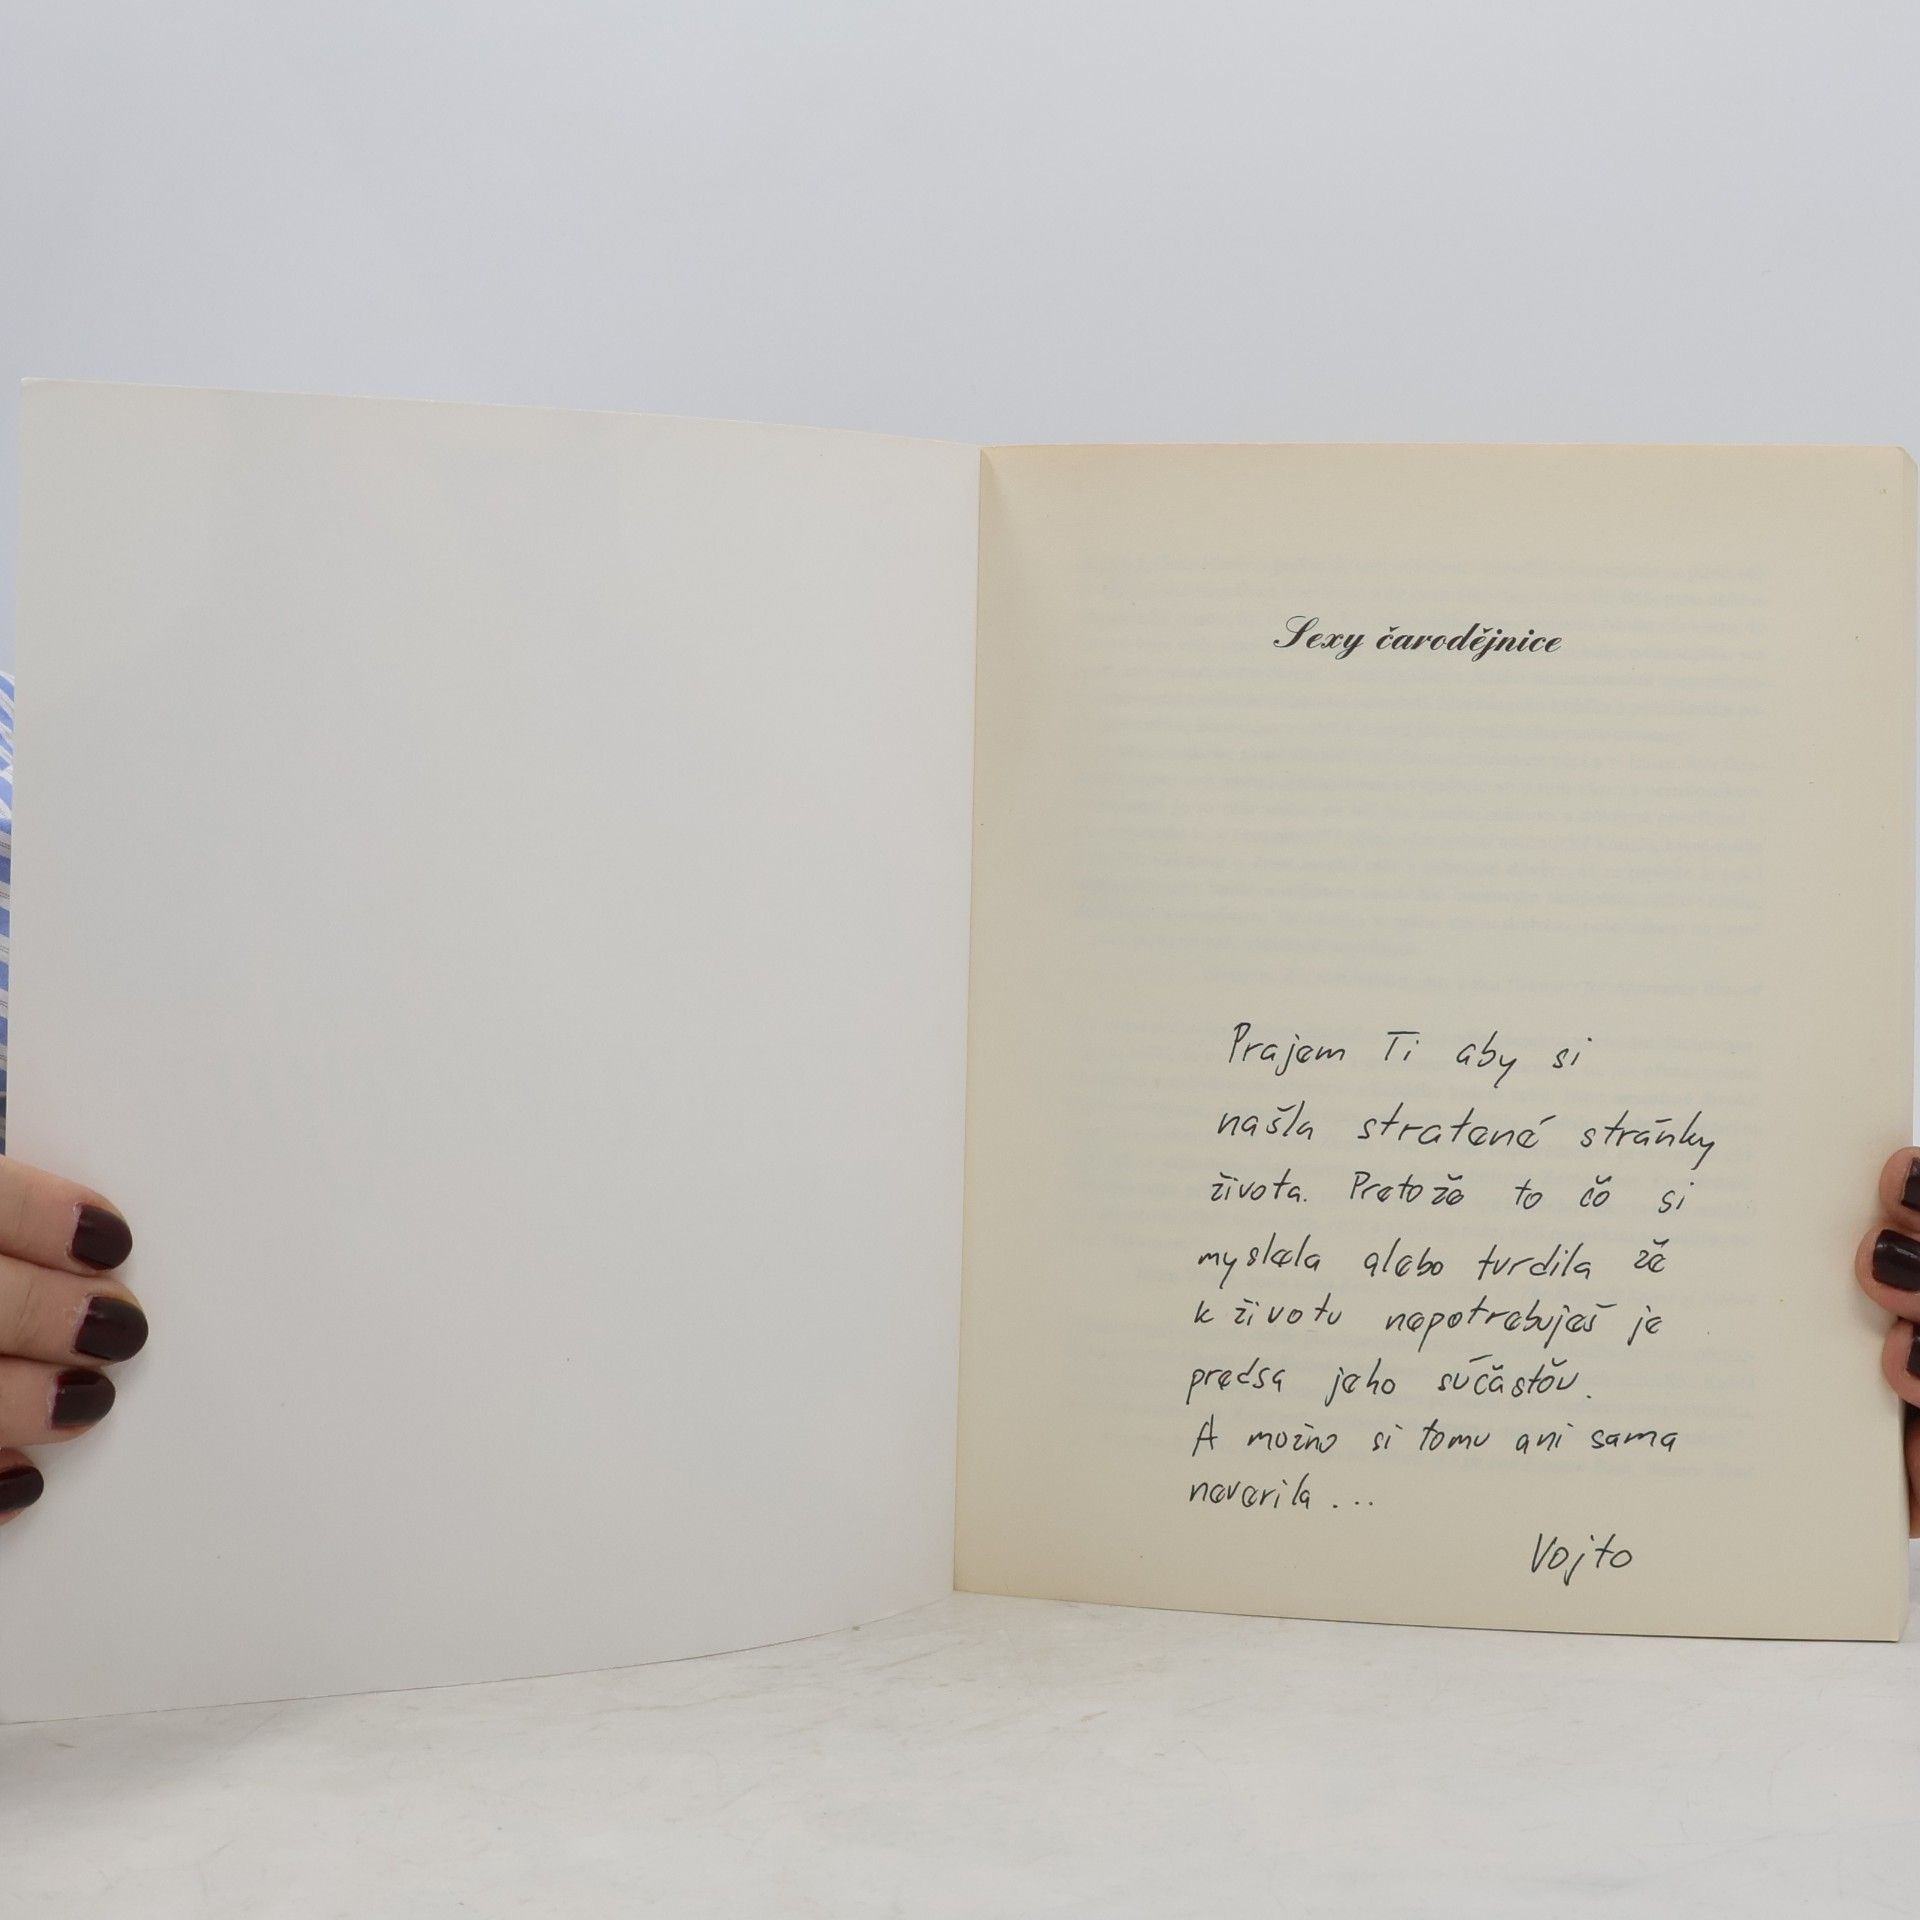 Sexy čarodějnice
Prajem Ti aby si
našla stratené stránky
života. Pretože to čo si
myslela alebo tvrdila že
k životu nepotrebuješ je
predsa jeho súčasťou.
A možno si tomu ani sama
neverila...
Vojto